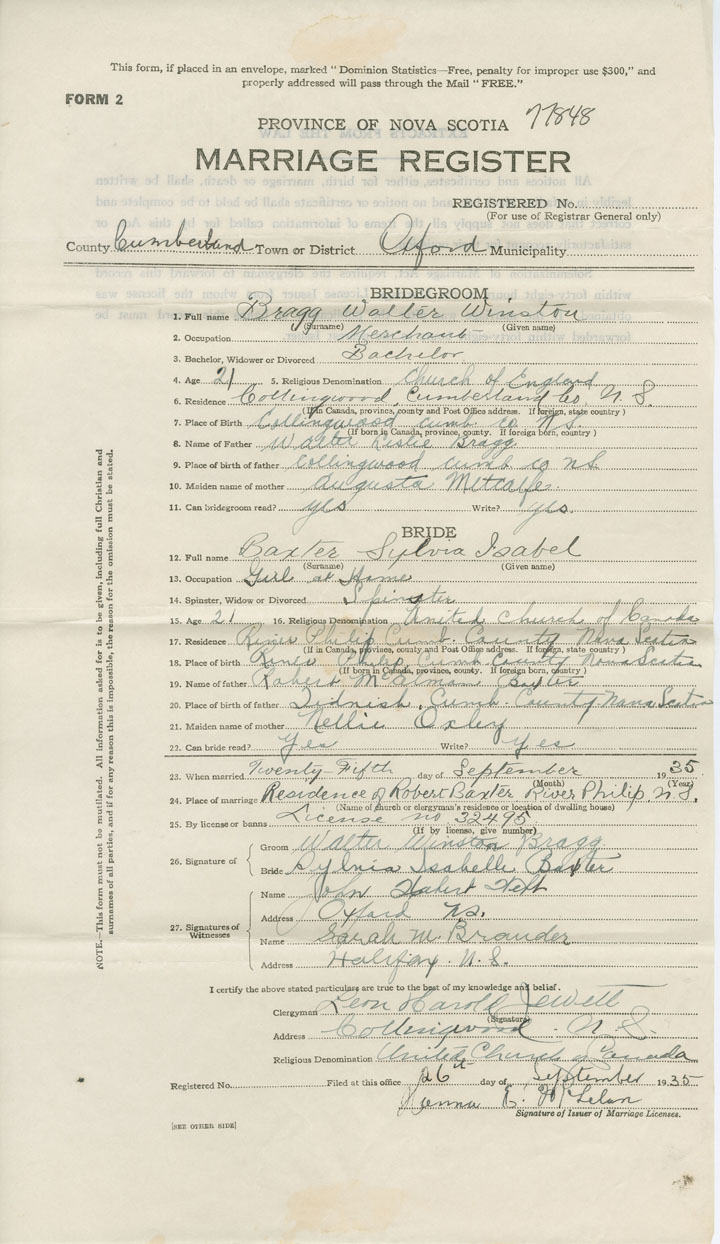 This form, if placed in an envelope, marked "Dominion Statistics—Free, penalty for improper use $300," and
properly addressed will pass through the Mail "FREE."
FORM 2
PROVINCE OF NOVA SCOTIA 77848
MARRIAGE REGISTER
REGISTERED No.
(For use of Registrar General only)
County Cumberland Town or District Oxford Municipality
BRIDEGROOM
1. Full name Bragg Walter Winston
(Surname) (Given name)
2. Occupation Merchant
3. Bachelor, Widower or Divorced Bachelor
4. Age 21 5. Religious Denomination Church of England
6. Residence Collingwood, Cumberland Co N. S.
(If in Canada, province, county and Post Office address. If foreign, state country)
7. Place of Birth Collingwood Cumb Co N.S.
(If born in Canada, province, county. If foreign born, country)
8. Name of Father Walter Leslie Bragg
9. Place of birth of father Collingwood Cumb Co NS
10. Maiden name of mother Augusta Metcalfe
11. Can bridegroom read? yes Write? yes.
BRIDE
12. Full name Baxter Sylvia Isabel
(Surname) (Given name)
13. Occupation Girl at Home
14. Spinster, Widow or Divorced Spinster
15. Age 21 16. Religious Denomination United Church of Canada
17. Residence River Philip Cumb. County Nova Scotia
(If in Canada, province, county and Post Office address. If foreign, state country)
18. Place of birth River Philip, Cumb County Nova Scotia
(If born in Canada, province, county. If foreign born, country)
19. Name of father Robert Baxter
20. Place of birth of father Tidnish, Cumb County Nova Scotia
21. Maiden name of mother Nellie Oxley
22. Can bride read? Yes Write? yes
23. When married Twenty-Fifth day of September 1935
(Month) (Year)
24. Place of marriage Residence of Robert Baxter River Philip, N.S.
(Name of church or clergyman's residence or location of dwelling house)
25. By license or banns License no 32495
(If by license, give number)
26. Signature of
Groom Walter Winston Bragg
Bride Sylvia Isabelle Baxter
27. Signatures of Witnesses
Name John Heft
Address Oxford NS.
Name Sarah M. Brander
Address Halifax. N.S.
I certify the above stated particulars are true to the best of my knowledge and belief.
Clergyman Leon Harold Jewett
(Signature)
Address Collingwood. N S.
Religious Denomination United Church of Canada
Registered No. Filed at this office 26th day of September 1935
E.
Signature of Issuer of Marriage Licenses.
[SEE OTHER SIDE]
NOTE.—This form must not be mutilated. All information asked for is to be given, including full Christian and
surnames of all parties, and if for any reason this is impossible, the reason for the omission must be stated.